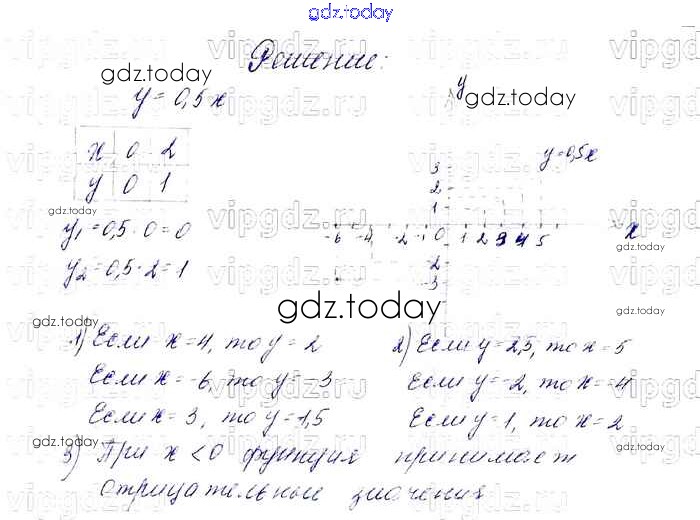 gdz.today
vipgdz.ru
Решение:
gdz.today
y = 0,5x
x 0 2
y 0 1
y₁ = 0,5 · 0 = 0
y₂ = 0,5 · 2 = 1
y
gdz.today
y = 0,5x
3
2
1
-6 -4 -2 -1 0 1 2 3 4 5 x
-2
-3
gdz.today
gdz.today
gdz.today
1) Если x = 4, то y = 2
Если x = -6, то y = -3
Если x = 3, то y = 1,5
2) Если y = 2,5, то x = 5
Если y = -2, то x = -4
Если y = 1, то x = 2
gdz.today
gdz.today
gdz.today
3) При x < 0 функция принимает
отрицательные значения